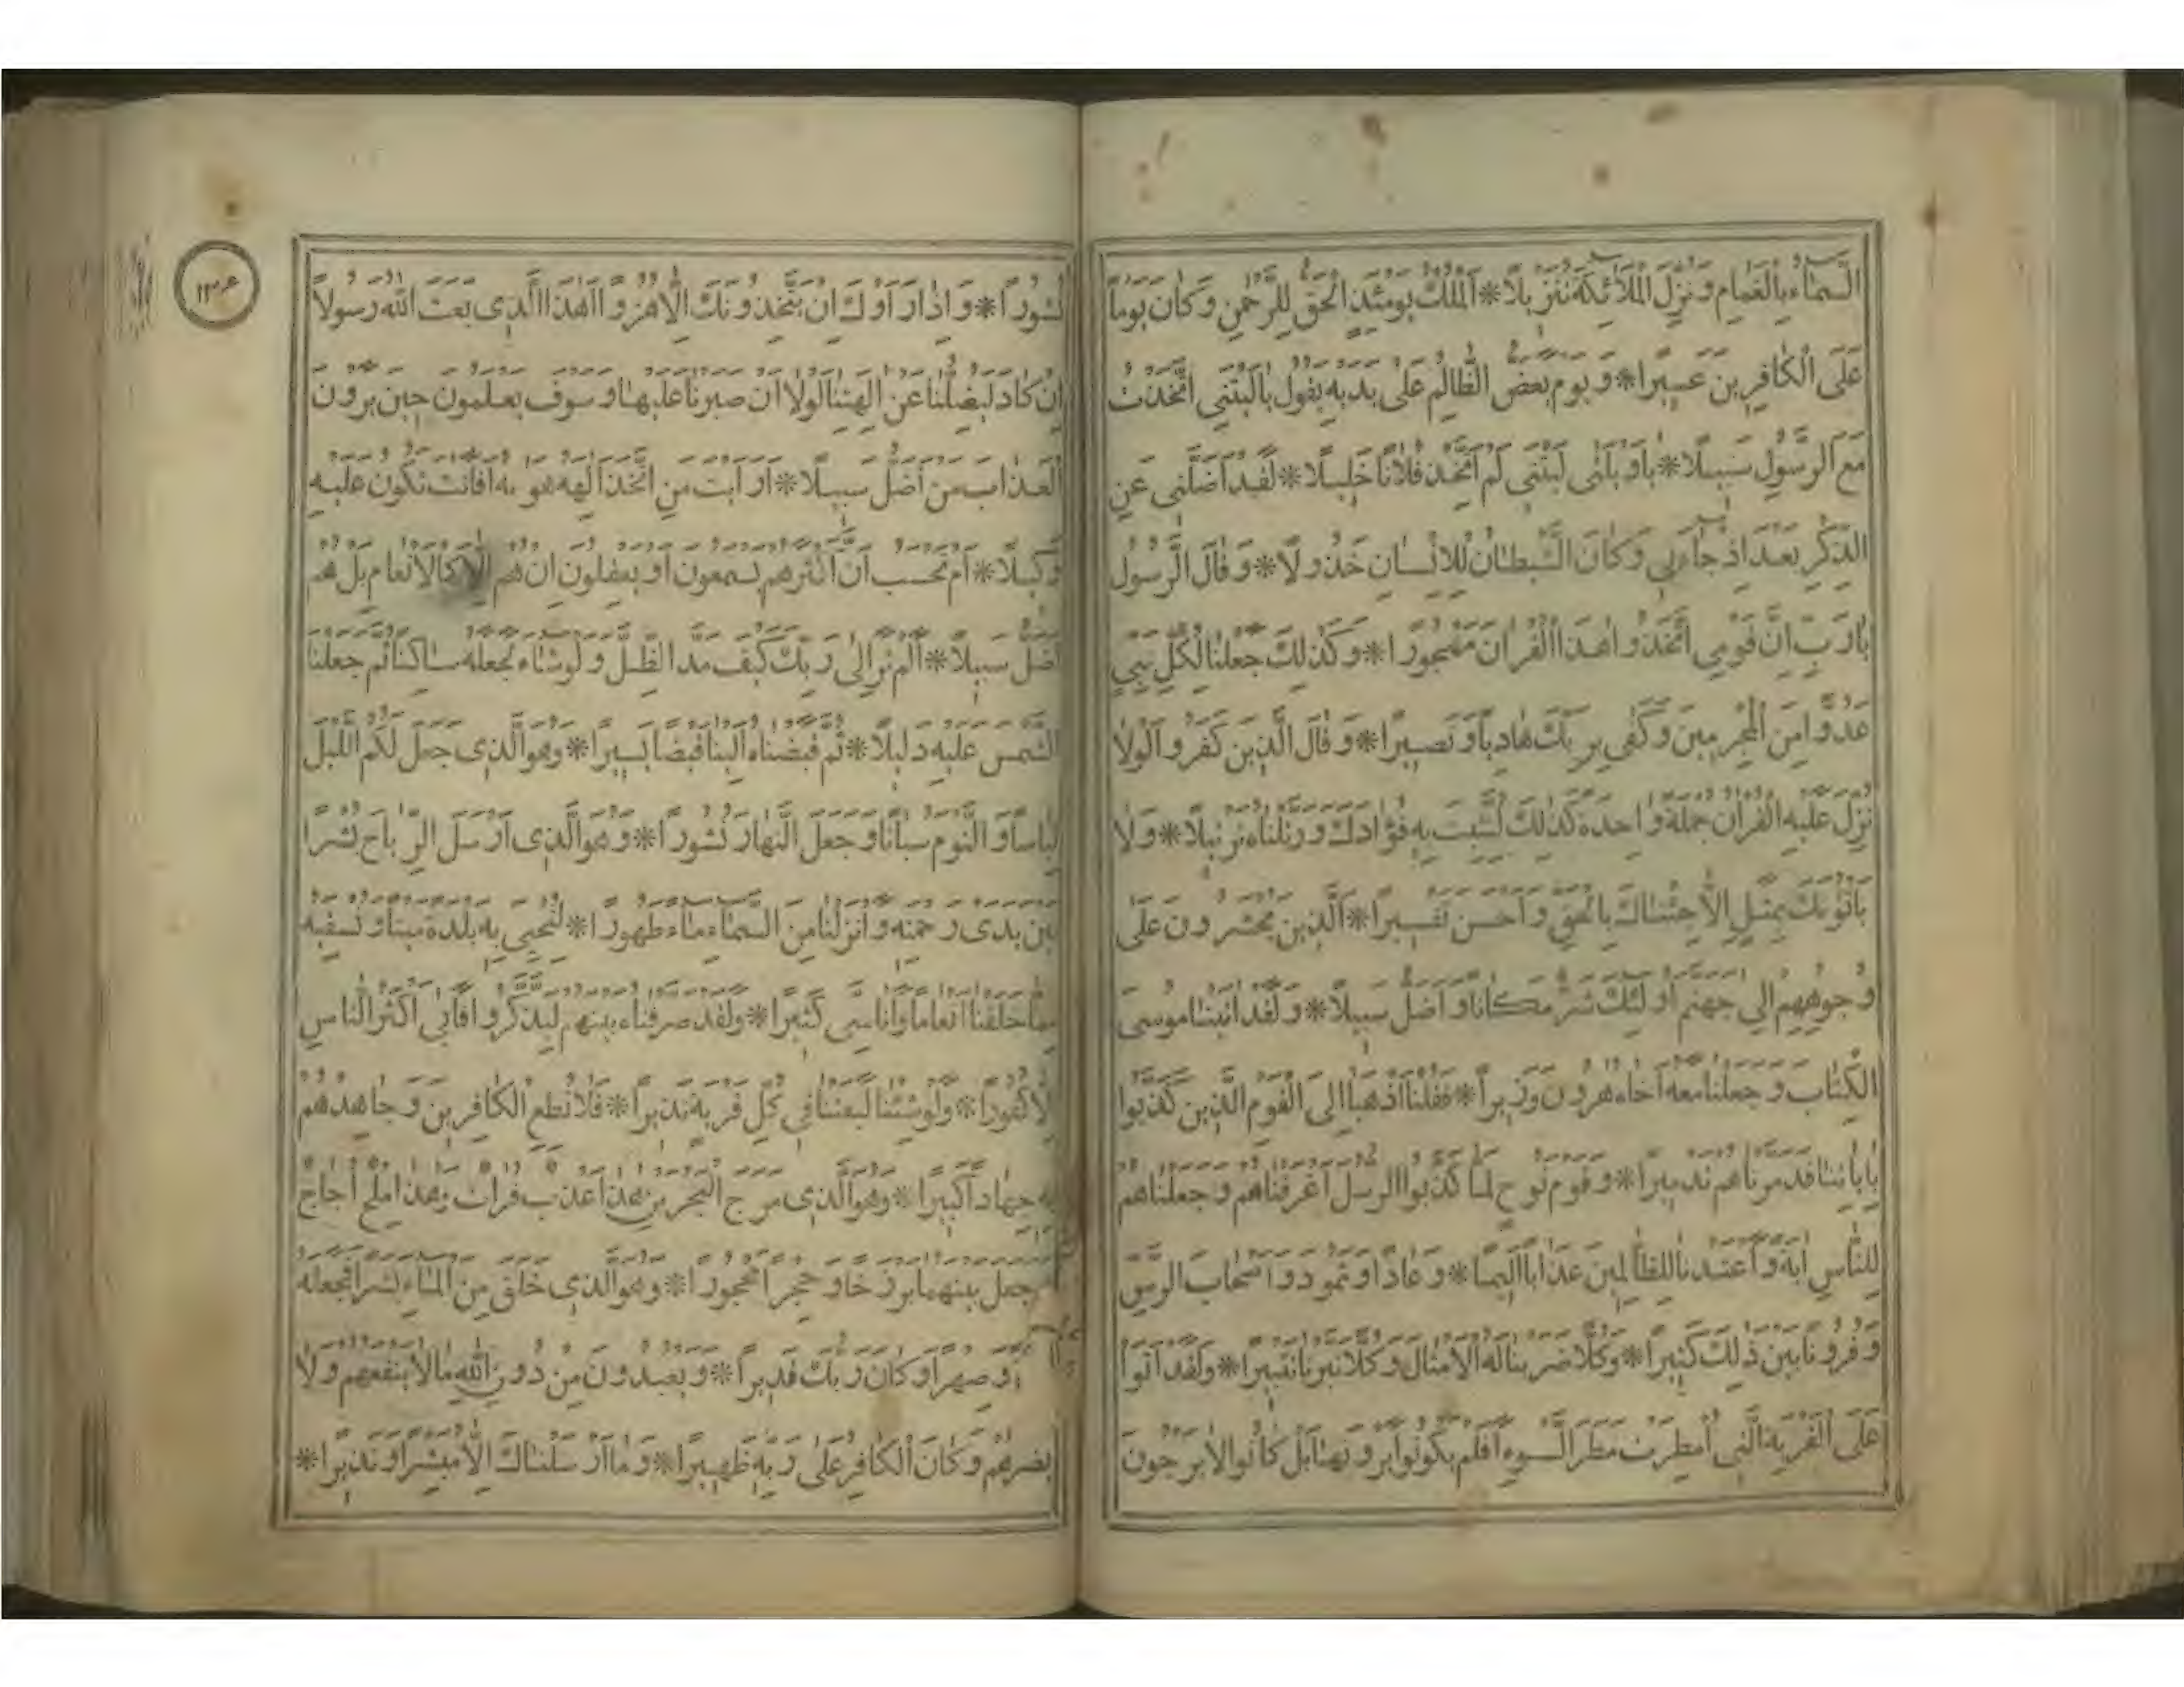 السَّمَاءُ بِالْغَمَامِ وَنُزِّلَ الْمَلَائِكَةُ تَنْزِيلًا * اَلْمُلْكُ يَوْمَئِذٍ الْحَقُّ لِلرَّحْمٰنِ وَكَانَ يَوْمًا
عَلَى الْكَافِرِينَ عَسِيرًا * وَيَوْمَ يَعَضُّ الظَّالِمُ عَلَى يَدَيْهِ يَقُولُ يَالَيْتَنِي اتَّخَذْتُ
مَعَ الرَّسُولِ سَبِيلًا * يَاوَيْلَتٰى لَيْتَنِي لَمْ اَتَّخِذْ فُلَانًا خَلِيلًا * لَقَدْ اَضَلَّنِي عَنِ
الذِّكْرِ بَعْدَ اِذْ جَاءَنِي وَكَانَ الشَّيْطَانُ لِلْاِنْسَانِ خَذُولًا * وَقَالَ الرَّسُولُ
يَارَبِّ اِنَّ قَوْمِي اتَّخَذُوا هٰذَا الْقُرْاٰنَ مَهْجُورًا * وَكَذٰلِكَ جَعَلْنَا لِكُلِّ نَبِيٍّ
عَدُوًّا مِنَ الْمُجْرِمِينَ وَكَفٰى بِرَبِّكَ هَادِيًا وَنَصِيرًا * وَقَالَ الَّذِينَ كَفَرُوا لَوْلَا
نُزِّلَ عَلَيْهِ الْقُرْاٰنُ جُمْلَةً وَاحِدَةً كَذٰلِكَ لِنُثَبِّتَ بِهِ فُؤَادَكَ وَرَتَّلْنَاهُ تَرْتِيلًا * وَلَا
يَأْتُونَكَ بِمَثَلٍ اِلَّا جِئْنَاكَ بِالْحَقِّ وَاَحْسَنَ تَفْسِيرًا * اَلَّذِينَ يُحْشَرُونَ عَلَى
وُجُوهِهِمْ اِلٰى جَهَنَّمَ اُولٰئِكَ شَرٌّ مَكَانًا وَاَضَلُّ سَبِيلًا * وَلَقَدْ اٰتَيْنَا مُوسَى
الْكِتَابَ وَجَعَلْنَا مَعَهُ اَخَاهُ هٰرُونَ وَزِيرًا * فَقُلْنَا اذْهَبَا اِلَى الْقَوْمِ الَّذِينَ كَذَّبُوا
بِاٰيَاتِنَا فَدَمَّرْنَاهُمْ تَدْمِيرًا * وَقَوْمَ نُوحٍ لَمَّا كَذَّبُوا الرُّسُلَ اَغْرَقْنَاهُمْ وَجَعَلْنَاهُمْ
لِلنَّاسِ اٰيَةً وَاَعْتَدْنَا لِلظَّالِمِينَ عَذَابًا اَلِيمًا * وَعَادًا وَثَمُودَ وَاَصْحَابَ الرَّسِّ
وَقُرُونًا بَيْنَ ذٰلِكَ كَثِيرًا * وَكُلًّا ضَرَبْنَا لَهُ الْاَمْثَالَ وَكُلًّا تَبَّرْنَا تَتْبِيرًا * وَلَقَدْ اَتَوْا
عَلَى الْقَرْيَةِ الَّتِي اُمْطِرَتْ مَطَرَ السَّوْءِ اَفَلَمْ يَكُونُوا يَرَوْنَهَا بَلْ كَانُوا لَا يَرْجُونَ
نُشُورًا * وَاِذَا رَاَوْكَ اِنْ يَتَّخِذُونَكَ اِلَّا هُزُوًا اَهٰذَا الَّذِي بَعَثَ اللّٰهُ رَسُولًا
اِنْ كَادَ لَيُضِلُّنَا عَنْ اٰلِهَتِنَا لَوْلَا اَنْ صَبَرْنَا عَلَيْهَا وَسَوْفَ يَعْلَمُونَ حِينَ يَرَوْنَ
الْعَذَابَ مَنْ اَضَلُّ سَبِيلًا * اَرَاَيْتَ مَنِ اتَّخَذَ اِلٰهَهُ هَوٰيهُ اَفَاَنْتَ تَكُونُ عَلَيْهِ
وَكِيلًا * اَمْ تَحْسَبُ اَنَّ اَكْثَرَهُمْ يَسْمَعُونَ اَوْ يَعْقِلُونَ اِنْ هُمْ اِلَّا كَالْاَنْعَامِ بَلْ هُمْ
اَضَلُّ سَبِيلًا * اَلَمْ تَرَ اِلٰى رَبِّكَ كَيْفَ مَدَّ الظِّلَّ وَلَوْ شَاءَ لَجَعَلَهُ سَاكِنًا ثُمَّ جَعَلْنَا
الشَّمْسَ عَلَيْهِ دَلِيلًا * ثُمَّ قَبَضْنَاهُ اِلَيْنَا قَبْضًا يَسِيرًا * وَهُوَ الَّذِي جَعَلَ لَكُمُ اللَّيْلَ
لِبَاسًا وَالنَّوْمَ سُبَاتًا وَجَعَلَ النَّهَارَ نُشُورًا * وَهُوَ الَّذِي اَرْسَلَ الرِّيَاحَ بُشْرًا
بَيْنَ يَدَيْ رَحْمَتِهِ وَاَنْزَلْنَا مِنَ السَّمَاءِ مَاءً طَهُورًا * لِنُحْيِيَ بِهِ بَلْدَةً مَيْتًا وَنُسْقِيَهُ
مِمَّا خَلَقْنَا اَنْعَامًا وَاَنَاسِيَّ كَثِيرًا * وَلَقَدْ صَرَّفْنَاهُ بَيْنَهُمْ لِيَذَّكَّرُوا فَاَبٰى اَكْثَرُ النَّاسِ
اِلَّا كُفُورًا * وَلَوْ شِئْنَا لَبَعَثْنَا فِي كُلِّ قَرْيَةٍ نَذِيرًا * فَلَا تُطِعِ الْكَافِرِينَ وَجَاهِدْهُمْ
بِهِ جِهَادًا كَبِيرًا * وَهُوَ الَّذِي مَرَجَ الْبَحْرَيْنِ هٰذَا عَذْبٌ فُرَاتٌ وَهٰذَا مِلْحٌ اُجَاجٌ
وَجَعَلَ بَيْنَهُمَا بَرْزَخًا وَحِجْرًا مَحْجُورًا * وَهُوَ الَّذِي خَلَقَ مِنَ الْمَاءِ بَشَرًا فَجَعَلَهُ
وَصِهْرًا وَكَانَ رَبُّكَ قَدِيرًا * وَيَعْبُدُونَ مِنْ دُونِ اللّٰهِ مَا لَا يَنْفَعُهُمْ وَلَا
يَضُرُّهُمْ وَكَانَ الْكَافِرُ عَلٰى رَبِّهِ ظَهِيرًا * وَمَا اَرْسَلْنَاكَ اِلَّا مُبَشِّرًا وَنَذِيرًا *